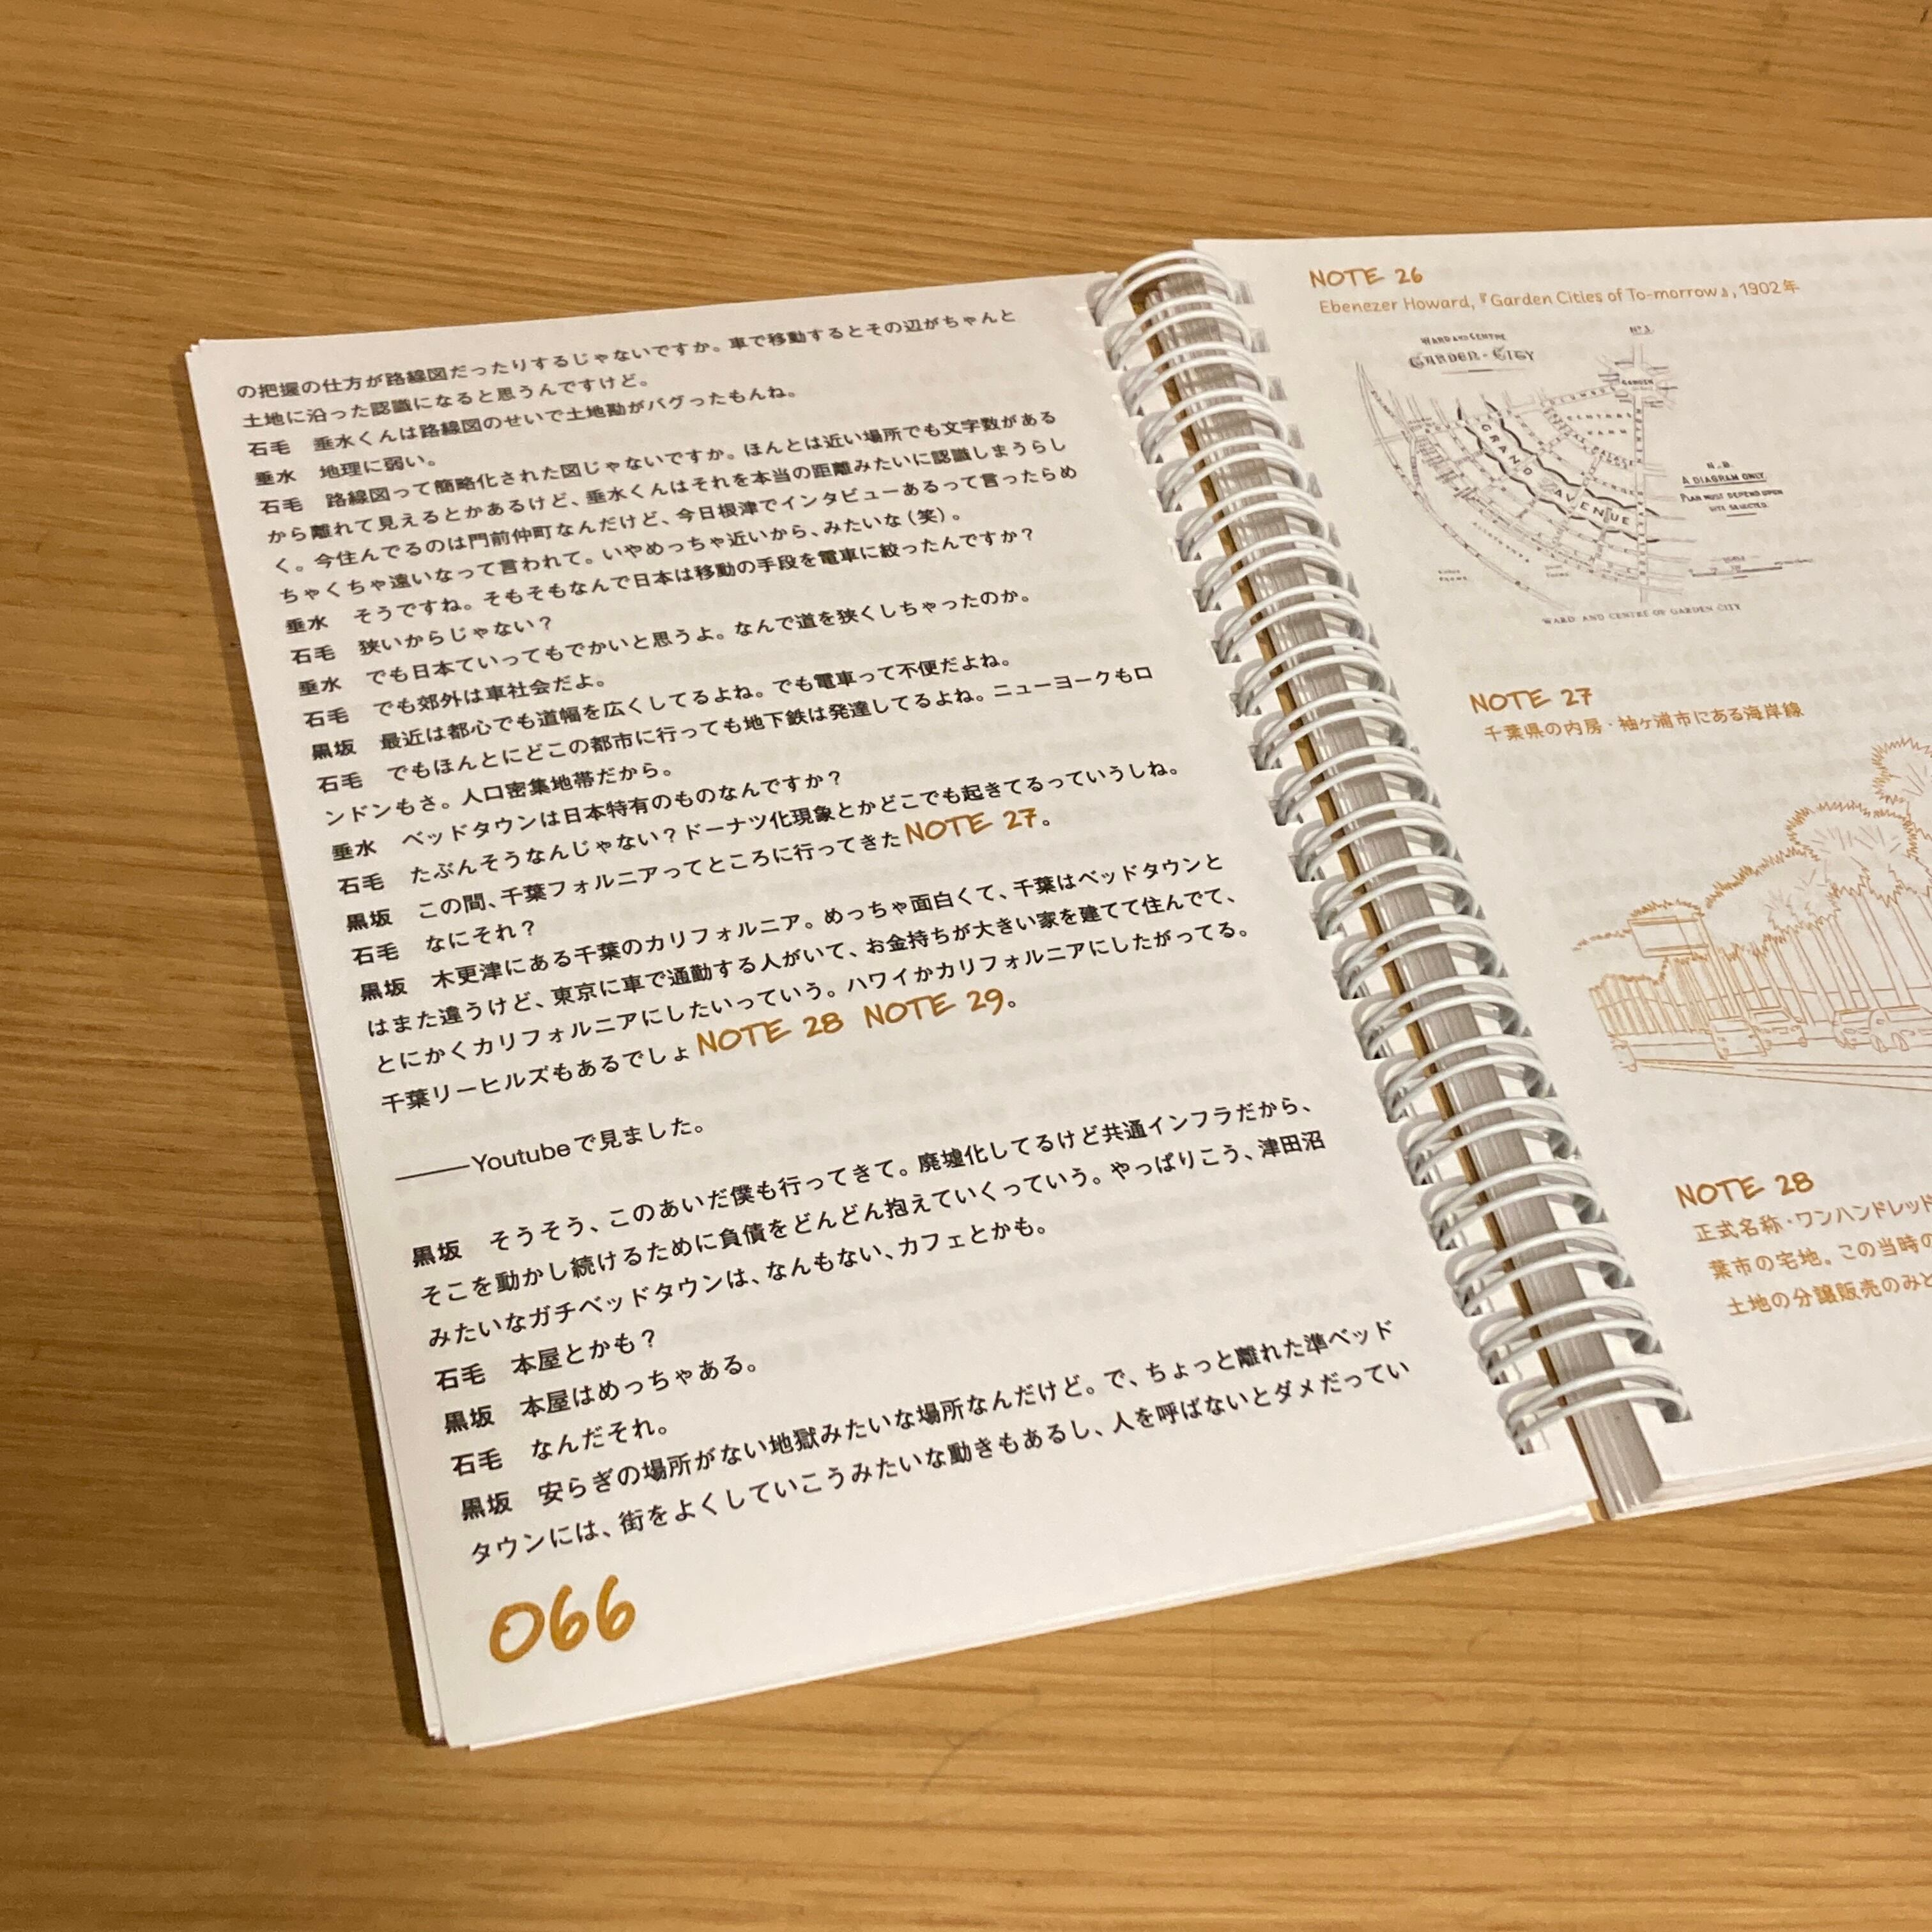 の把握の仕方が路線図だったりするじゃないですか。車で移動するとその辺がちゃんと
土地に沿った認識になると思うんですけど。
石毛　垂水くんは路線図のせいで土地勘がバグったもんね。
垂水　地理に弱い。
石毛　路線図って簡略化された図じゃないですか。ほんとは近い場所でも文字数がある
から離れて見えるとかあるけど、垂水くんはそれを本当の距離みたいに認識しまうらし
く。今住んでるのは門前仲町なんだけど、今日根津でインタビューあるって言ったらめ
ちゃくちゃ遠いなって言われて。いやめっちゃ近いから、みたいな（笑）。
垂水　そうですね。そもそもなんで日本は移動の手段を電車に絞ったんですか？
石毛　狭いからじゃない？
垂水　でも日本ていってもでかいと思うよ。なんで道を狭くしちゃったのか。
石毛　でも郊外は車社会だよ。
黒坂　最近は都心でも道幅を広くしてるよね。でも電車って不便だよね。
石毛　でもほんとにどこの都市に行っても地下鉄は発達してるよね。ニューヨークもロ
ンドンもさ。人口密集地帯だから。
垂水　ベッドタウンは日本特有のものなんですか？
石毛　たぶんそうなんじゃない？ドーナツ化現象とかどこでも起きてるっていうしね。
黒坂　この間、千葉フォルニアってところに行ってきたNOTE 27。
石毛　なにそれ？
黒坂　木更津にある千葉のカリフォルニア。めっちゃ面白くて、千葉はベッドタウンと
はまた違うけど、東京に車で通勤する人がいて、お金持ちが大きい家を建てて住んでて、
とにかくカリフォルニアにしたいっていう。ハワイかカリフォルニアにしたがってる。
千葉リーヒルズもあるでしょNOTE 28 NOTE 29。
――Youtubeで見ました。
黒坂　そうそう、このあいだ僕も行ってきて。廃墟化してるけど共通インフラだから、
そこを動かし続けるために負債をどんどん抱えていくっていう。やっぱりこう、津田沼
みたいなガチベッドタウンは、なんもない、カフェとかも。
石毛　本屋とかも？
黒坂　本屋はめっちゃある。
石毛　なんだそれ。
黒坂　安らぎの場所がない地獄みたいな場所なんだけど。で、ちょっと離れた準ベッド
タウンには、街をよくしていこうみたいな動きもあるし、人を呼ばないとダメだってい
066
NOTE 26
Ebenezer Howard,『Garden Cities of To-morrow』, 1902年
WARD AND CENTRE
GARDEN-CITY
Nº3.
GARDEN
GRAND AVENUE
N.B.
A DIAGRAM ONLY.
PLAN MUST DEPEND UPON
SITE SELECTED.
WARD AND CENTRE OF GARDEN CITY
NOTE 27
千葉県の内房・袖ヶ浦市にある海岸線
NOTE 28
正式名称・ワンハンドレッド
葉市の宅地。この当時の
土地の分譲販売のみ